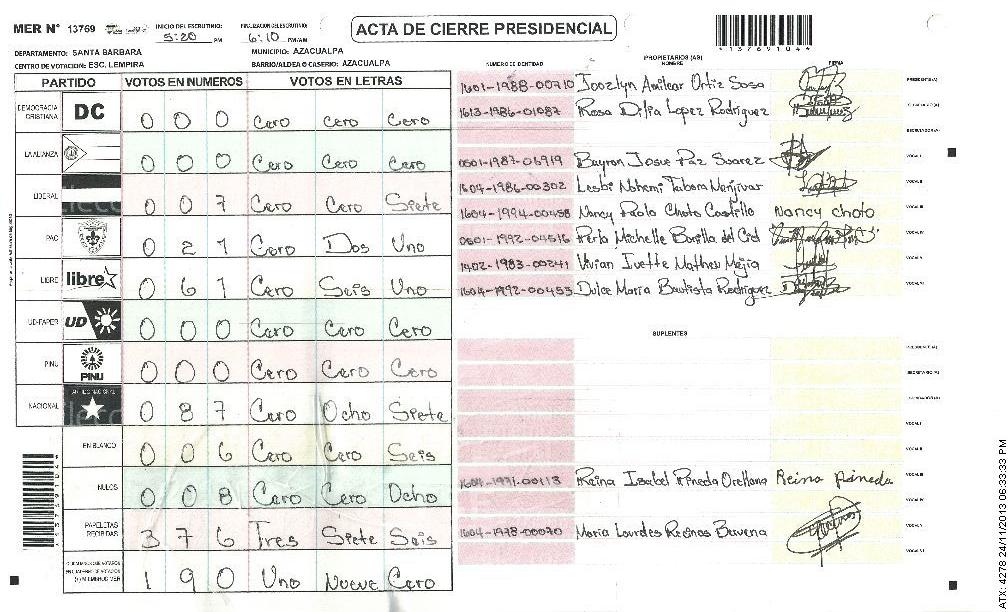 MER N° 13769 INICIO DEL ESCRUTINIO: 5:20 PM FINALIZACION DEL ESCRUTINIO: 6:10 PM/AM
ACTA DE CIERRE PRESIDENCIAL
4137691044
DEPARTAMENTO: SANTA BARBARA MUNICIPIO: AZACUALPA
CENTRO DE VOTACION: ESC. LEMPIRA BARRIO/ALDEA O CASERIO: AZACUALPA
PARTIDO VOTOS EN NUMEROS VOTOS EN LETRAS
DEMOCRACIA CRISTIANA DC 0 0 0 Cero Cero Cero
LA ALIANZA 0 0 0 Cero Cero Cero
LIBERAL 0 0 7 Cero Cero Siete
PAC 0 2 1 Cero Dos Uno
LIBRE libre 0 6 1 Cero Seis Uno
UD-FAPER UD 0 0 0 Cero Cero Cero
PINU PINU 0 0 0 Cero Cero Cero
NACIONAL 0 8 7 Cero Ocho Siete
EN BLANCO 0 0 6 Cero Cero Seis
NULOS 0 0 8 Cero Cero Ocho
PAPELETAS RECIBIDAS 3 7 6 Tres Siete Seis
1 9 0 Uno Nueve Cero
PROPIETARIOS (AS)
NUMERO DE IDENTIDAD NOMBRE FIRMA
1601-1988-00710 Joozlyn Amilcar Ortiz Sosa PRESIDENTE(A)
1613-1986-01087 Rosa Dilia Lopez Rodriguez
SECRETARIO(A)
0501-1987-06919 Bayron Josue Paz Suarez VOCAL I
1604-1986-00302 Lesbi Nohemi Tabora Menjivar VOCAL II
1604-1994-00458 Nancy Paola Choto Castillo Nancy choto VOCAL III
0501-1992-04516 Perla Michelle Bonilla del Cid VOCAL IV
1402-1983-00241 Vivian Ivette Matheu Mejia VOCAL V
1604-1992-00453 Dulce Maria Bautista Rodriguez VOCAL VI
SUPLENTES
PRESIDENTE(A)
SECRETARIO(A)
VOCAL I
VOCAL II
1604-1971-00113 Reina Isabel Pineda Orellana Reina pineda VOCAL III
VOCAL IV
1604-1978-00070 Maria Lourdes Recinos VOCAL V
VOCAL VI
ATX: 4278 24/11/2013 06:33:33 PM